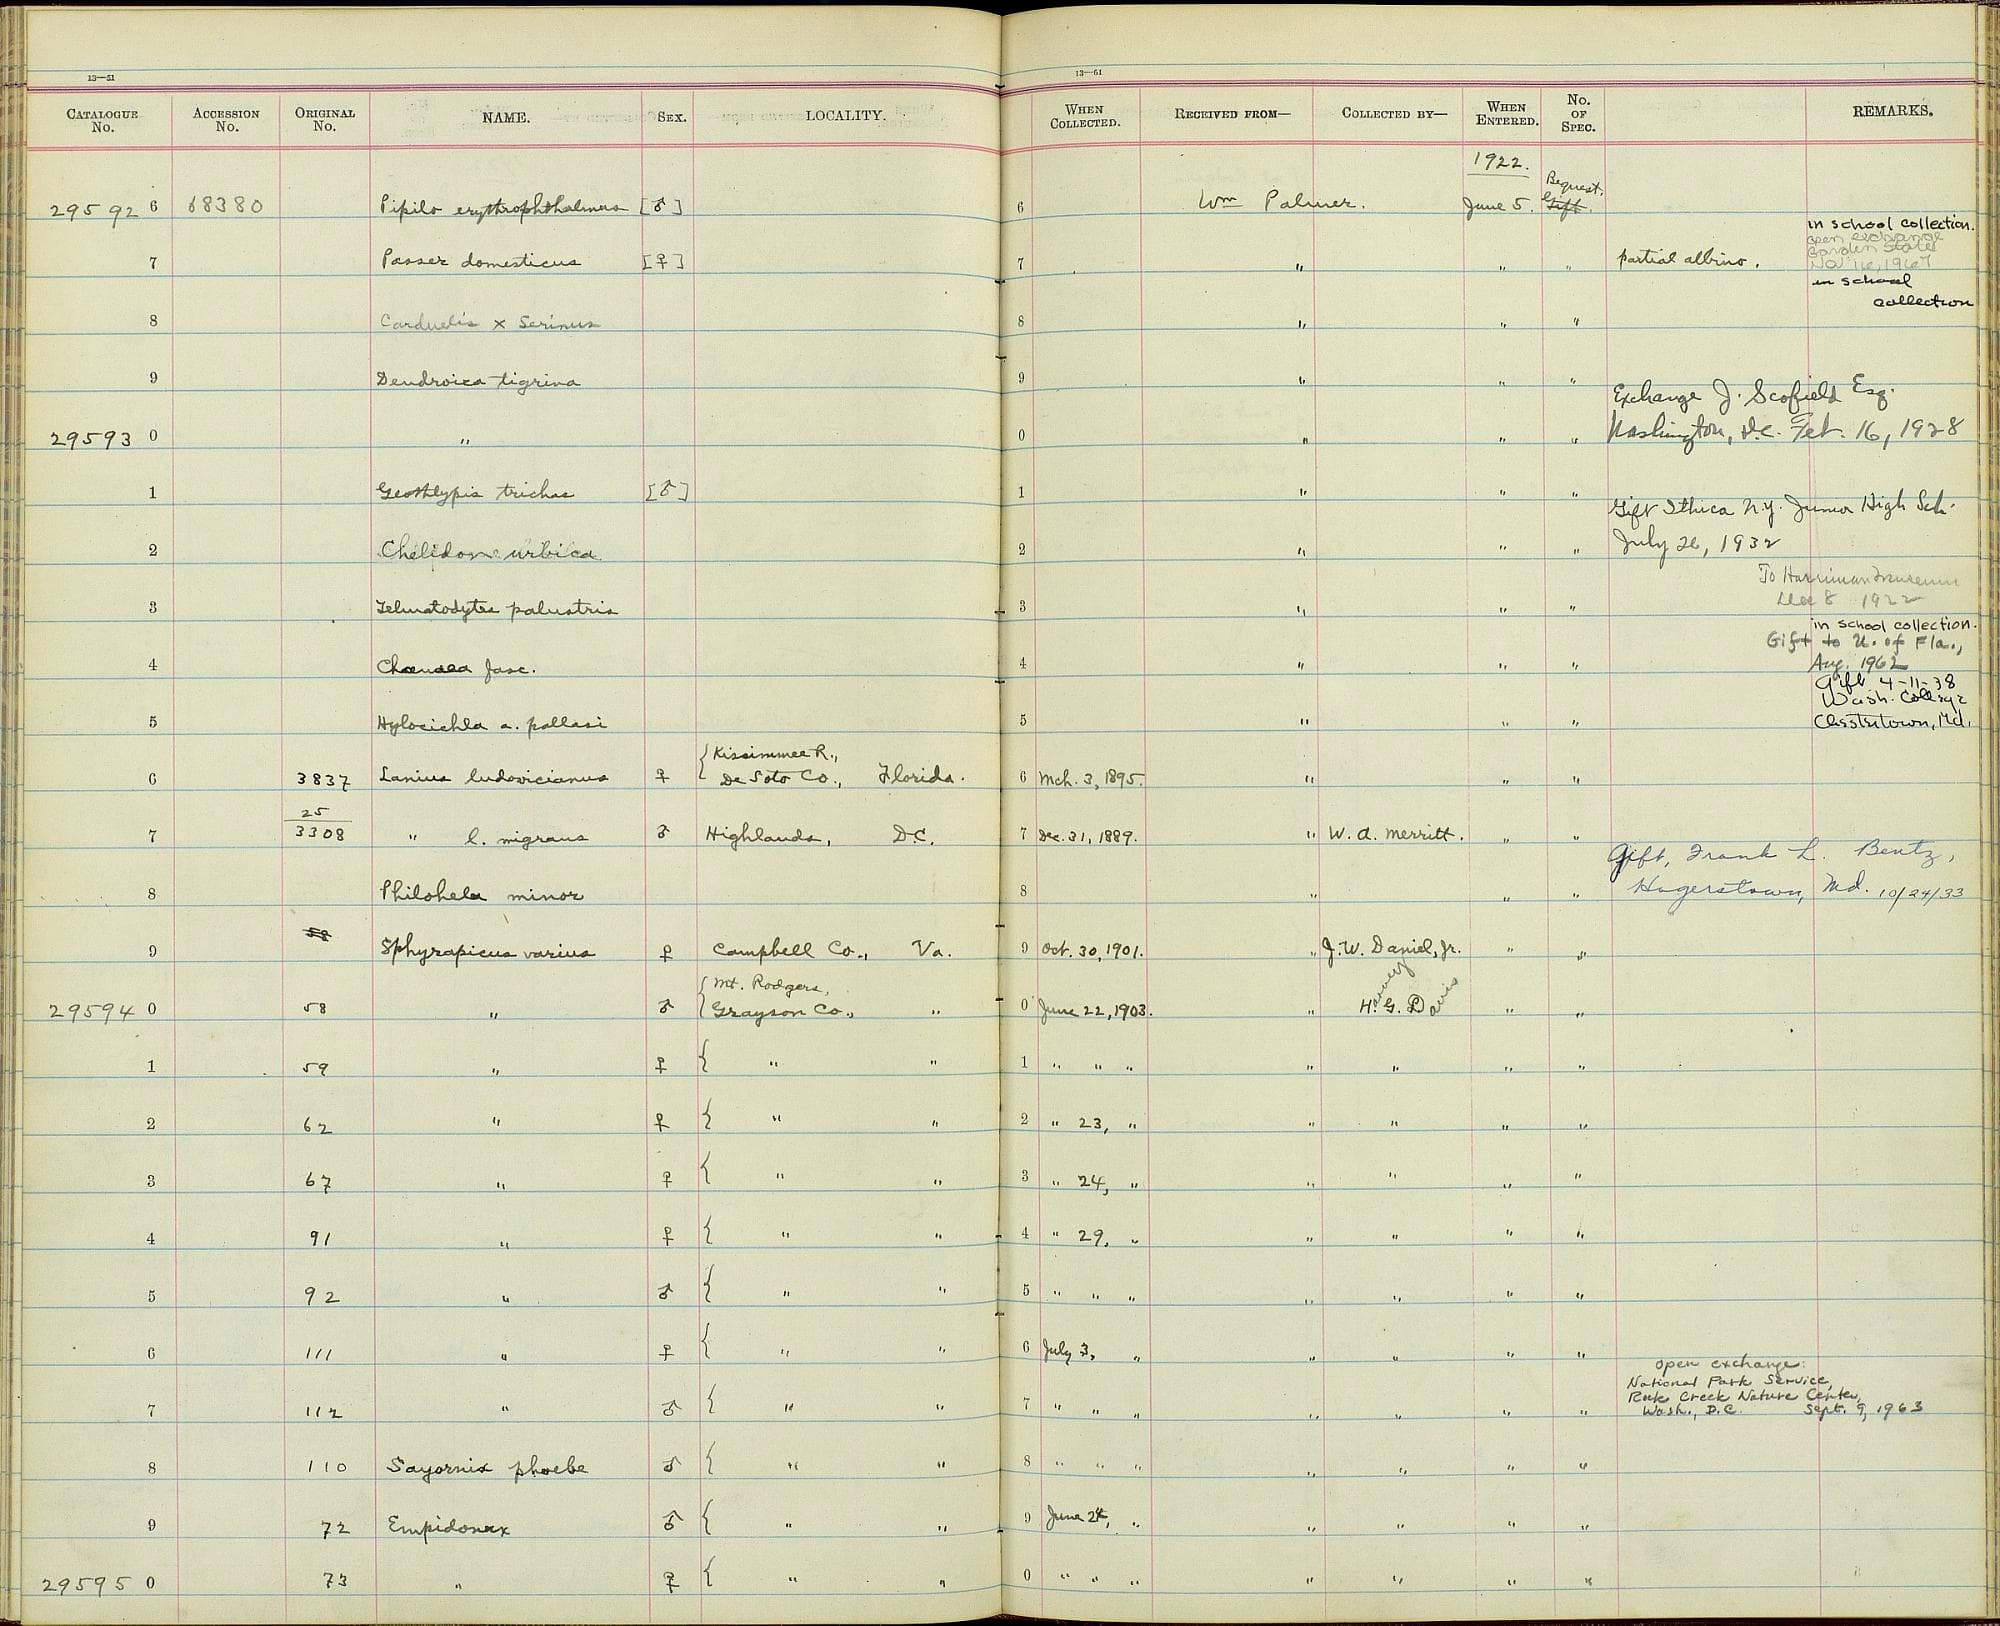 13—51
CATALOGUE No. ACCESSION No. ORIGINAL No. NAME. SEX. LOCALITY.
29592 6 68380 Pipilo erythrophthalmus [♂]
7 Passer domesticus [♀]
8 Carduelis x Serinus
9 Dendroica tigrina
29593 0 "
1 Geothlypis trichas [♂]
2 Chelidon urbica
3 Telmatodytes palustris
4 Chamaea fasc.
5 Hylocichla a. pallasi
{ Kissimmee R.,
6 3837 Lanius ludovicianus ♀ De Soto Co., Florida.
25
7 3308 " l. migrans ♂ Highlands, D.C.
8 Philohela minor
58
9 Sphyrapicus varius ♀ Campbell Co., Va.
{ Mt. Rodgers,
29594 0 58 " ♂ Grayson Co., "
1 59 " ♀ { " "
2 62 " ♀ { " "
3 67 " ♀ { " "
4 91 " ♀ { " "
5 92 " ♂ { " "
6 111 " ♀ { " "
7 112 " ♂ { " "
8 110 Sayornis phoebe ♂ { " "
9 72 Empidonax ♂ { " "
29595 0 73 " ♀ { " "
13—51
WHEN COLLECTED. RECEIVED FROM— COLLECTED BY— WHEN ENTERED. No. OF SPEC. REMARKS.
1922.
Bequest.
6 Wm Palmer. June 5. Gift.
in school collection.
open exchange
Garden State
7 " " " partial albino. Nov 16, 1967
in school
collection
8 " " "
9 " " "
Exchange J. Scofield Esq.
0 " " " Washington, D.C. Feb. 16, 1928
1 " " "
Gift Ithica N.Y. Junior High Sch.
2 " " " July 26, 1932
To Harriman Museum
3 " " " Dec 8 1922
in school collection.
Gift to U. of Fla.,
4 " " " Aug. 1962
Gift 4-11-38
Wash. College
5 " " " Chestertown, Md.
6 Mch. 3, 1895. " " "
7 Dec. 31, 1889. " W. A. Merritt. " "
Gift, Frank L. Bentz,
8 " " " Hagerstown, Md. 10/24/33
9 Oct. 30, 1901. " J. W. Daniel, Jr. " "
Harvey
0 June 22, 1903. " H. G. Davis " "
1 " " " " " " "
2 " 23, " " " " "
3 " 24, " " " " "
4 " 29, " " " " "
5 " " " " " " "
6 July 3, " " " " "
open exchange:
National Park Service,
Rock Creek Nature Center,
7 " " " " " " " Wash., D.C. Sept. 9, 1963
8 " " " " " " "
9 June 24, " " " " "
0 " " " " " " "